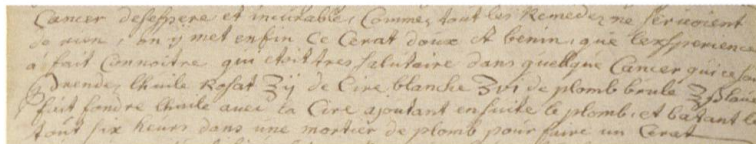 Cancer desespere et incurable, Comme tout les Remedes ne servoient
de rien, on y met enfin ce Cerat doux et benin, que l'experience
a fait Connoitre qui etoit tres salutaire dans quelque Cancer que ce soit
Prendez lhuile Rosat ʒij de Cire blanche ʒvi de plomb brulé
fait fondre lhuile avec la Cire ajoutant ensuite le plomb, et batant le
tout six heurs dans une mortier de plomb pour faire un Cerat